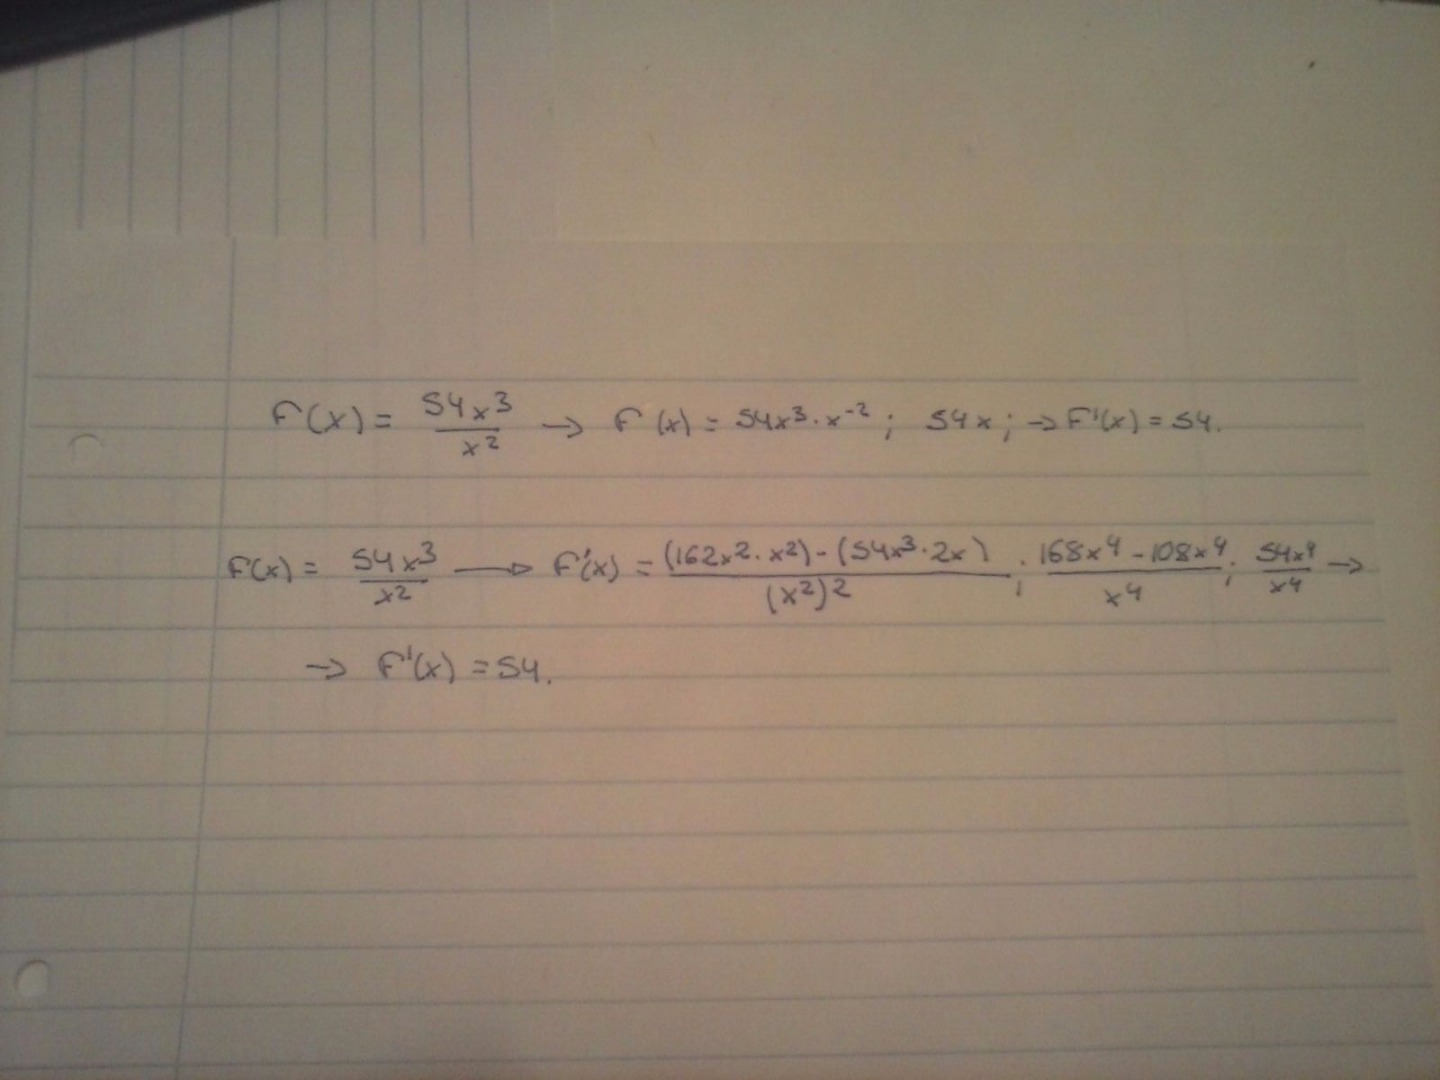 F(x) = 54x³/x² → F(x) = 54x³·x⁻²; 54x; → F'(x) = 54.
F(x) = 54x³/x² → F'(x) = (162x²·x²)-(54x³·2x)/(x²)²; 168x⁴-108x⁴/x⁴; 54x⁴/x⁴ →
→ F'(x) = 54.